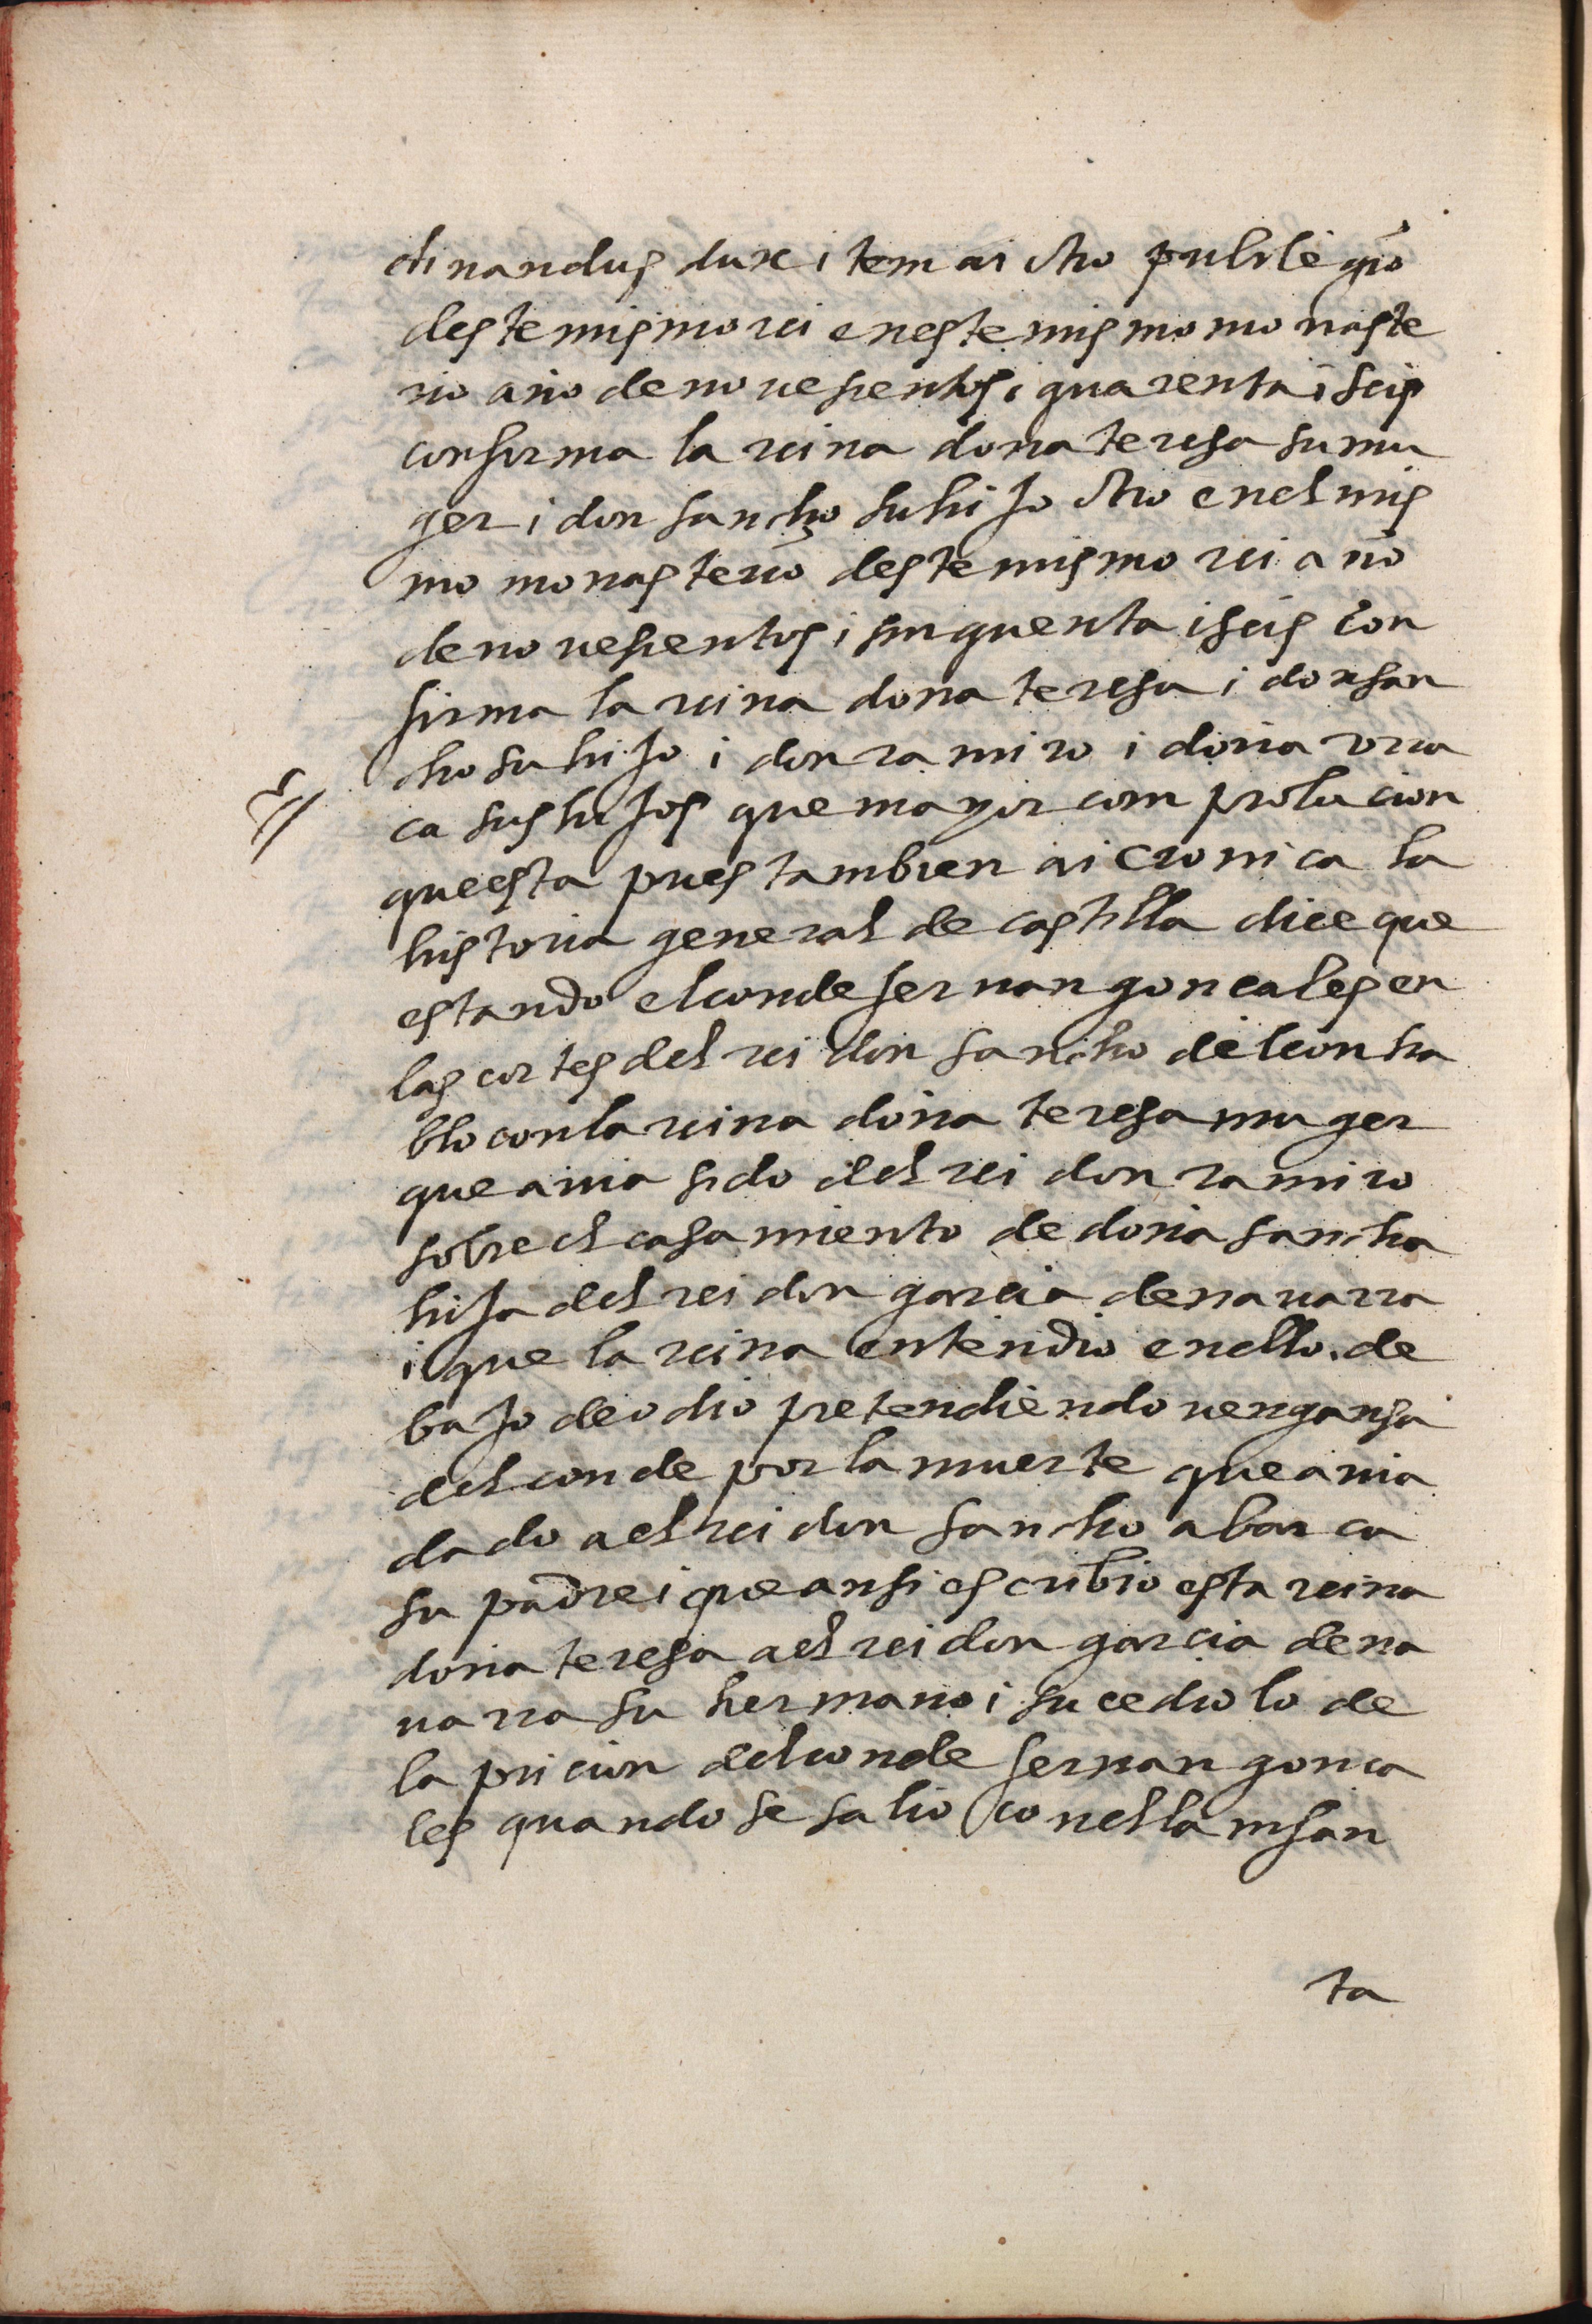 dinandus dux item ai otro previlegio
deste mismo rei en este mismo monaste
rio año de novesientos i quarenta i seis
confirma la reina dona teresa su mu
ger i don sancho su hijo otro en el mis
mo monasterio deste mismo rei año
de novesientos i sinquenta i seis con
firma la reina dona teresa i don san
cho su hijo i don ramiro i doña vrra
ca sus hijos que mayor comprobacion
que esta pues tambien ai cronica la
historia general de castilla dice que
estando el conde fernan goncales en
las cortes del rei don sancho de leon ha
blo con la reina doña teresa muger
que avia sido del rei don ramiro
sobre el casamiento de doña sancha
hija del rei don garcia de navarra
i que la reina entendio en ello de
bajo de odio pretendiendo vengansa
del conde por la muerte que avia
dado a el rei don sancho abarca
su padre i que ansi escribio esta reina
doña teresa a el rei don garcia de na
varra su hermano i sucedio lo de
la pricion del conde fernan gonca
les quando se salio con el la infan
ta